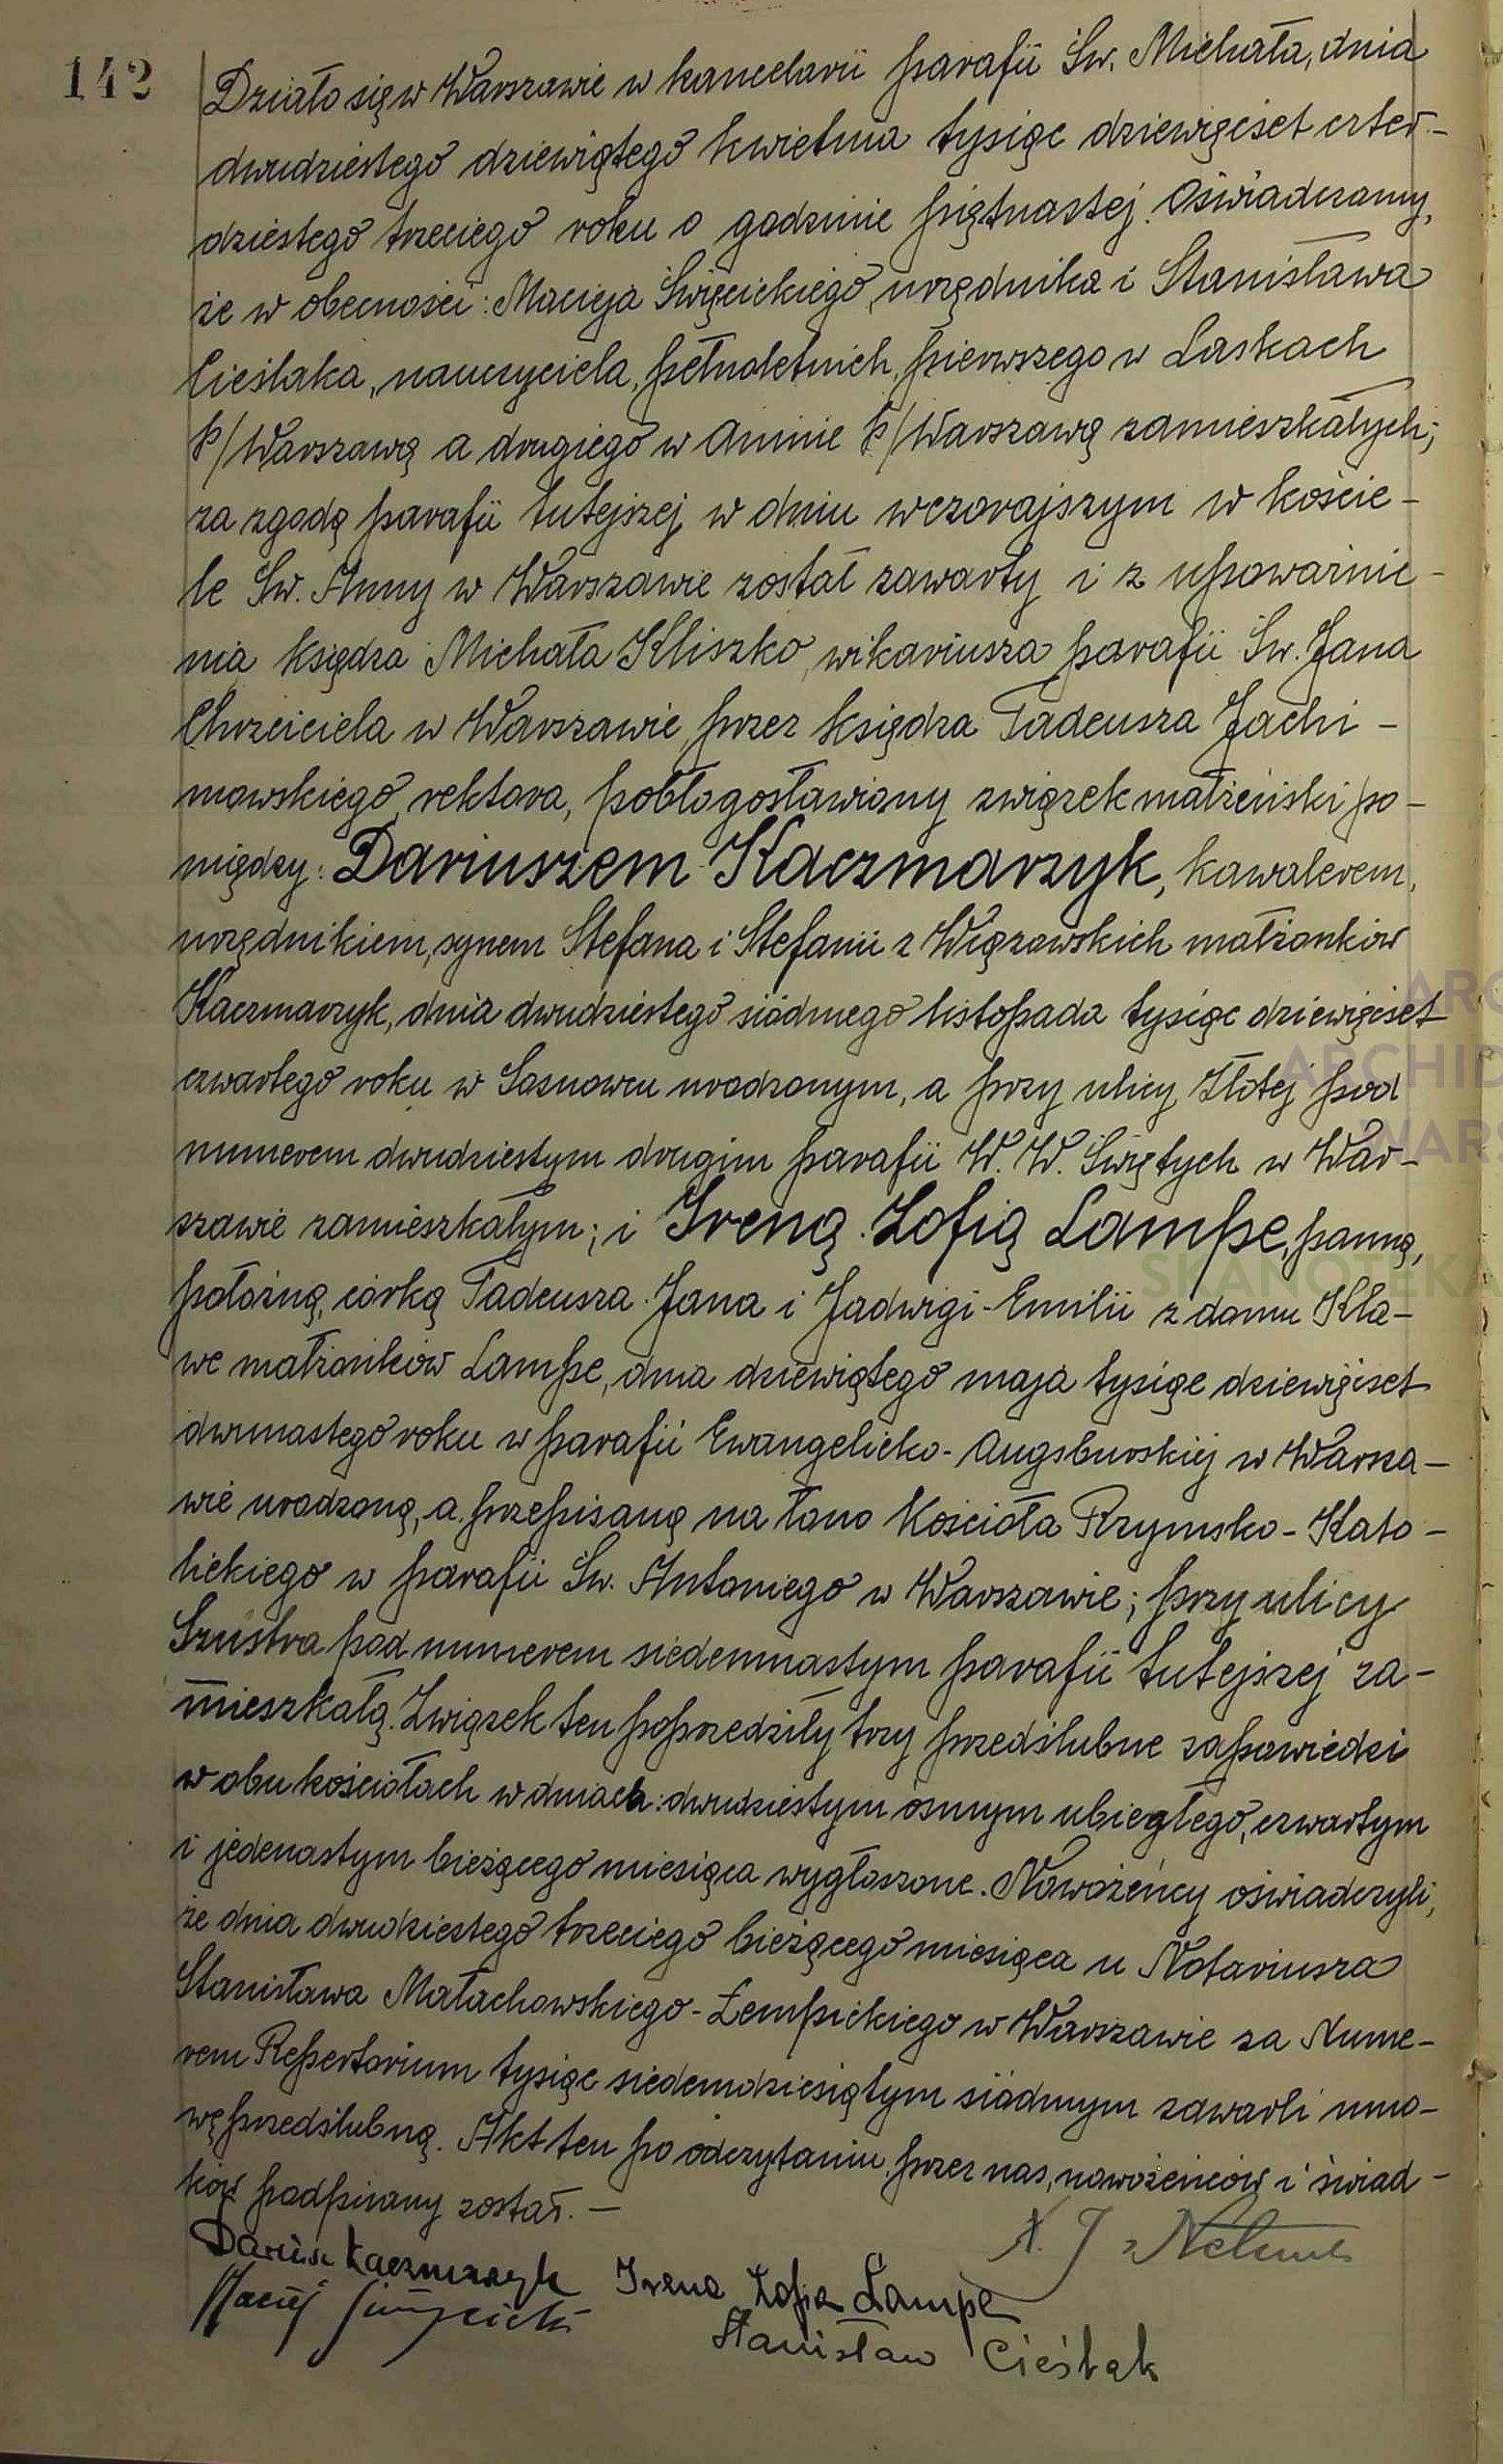 142
Działo się w Warszawie w kancelarii parafii Św. Michała, dnia
dwudziestego dziewiątego kwietnia tysiąc dziewięćset czter-
dziestego trzeciego roku o godzinie piętnastej. Oświadczamy,
że w obecności: Macieja Święcickiego, urzędnika i Stanisława
Cieślaka, nauczyciela, pełnoletnich, pierwszego w Laskach
p/Warszawą a drugiego w Aninie p/Warszawą zamieszkałych;
za zgodą parafii tutejszej w dniu wczorajszym w koście-
le Św. Anny w Warszawie został zawarty i z upoważnie-
nia księdza Michała Kliszko, wikariusza parafii Św. Jana
Chrzciciela w Warszawie, przez księdza Tadeusza Jachi-
mowskiego, rektora, pobłogosławiony związek małżeński po-
między: Dariuszem Kaczmarzyk, kawalerem,
urzędnikiem, synem Stefana i Stefanii z Więzowskich małżonków
Kaczmarzyk, dnia dwudziestego siódmego listopada tysiąc dziewięćset
czwartego roku w Sosnowcu urodzonym, a przy ulicy Złotej pod
numerem dwudziestym drugim parafii W. W. Świętych w War-
szawie zamieszkałym; i Ireną Zofią Lampe, panną,
położną, córką Tadeusza Jana i Jadwigi-Emilii z domu Kla-
we małżonków Lampe, dnia dziewiątego maja tysiąc dziewięćset
dwunastego roku w parafii Ewangelicko-Augsburskiej w Warsza-
wie urodzoną, a przepisaną na łono Kościoła Rzymsko-Kato-
lickiego w parafii Św. Antoniego w Warszawie; przy ulicy
Szustra pod numerem siedemnastym parafii tutejszej za-
mieszkałą. Związek ten poprzedziły trzy przedślubne zapowiedzi
w obu kościołach w dniach: dwudziestym ósmym ubiegłego, czwartym
i jedenastym bieżącego miesiąca wygłoszone. Nowożeńcy oświadczyli,
że dnia dwudziestego trzeciego bieżącego miesiąca u Notariusza
Stanisława Małachowskiego-Łempickiego w Warszawie za Nume-
rem Repertorium tysiąc siedemdziesiątym siódmym zawarli umo-
wę przedślubną. Akt ten po odczytaniu, przez nas, nowożeńców i świad-
ków podpisany został. —
X. J.
Dariusz Kaczmarzyk Irena Zofia Lampe
Maciej Święcicki
Stanisław Cieślak
ARCHID
WARS
SKANOTEKA